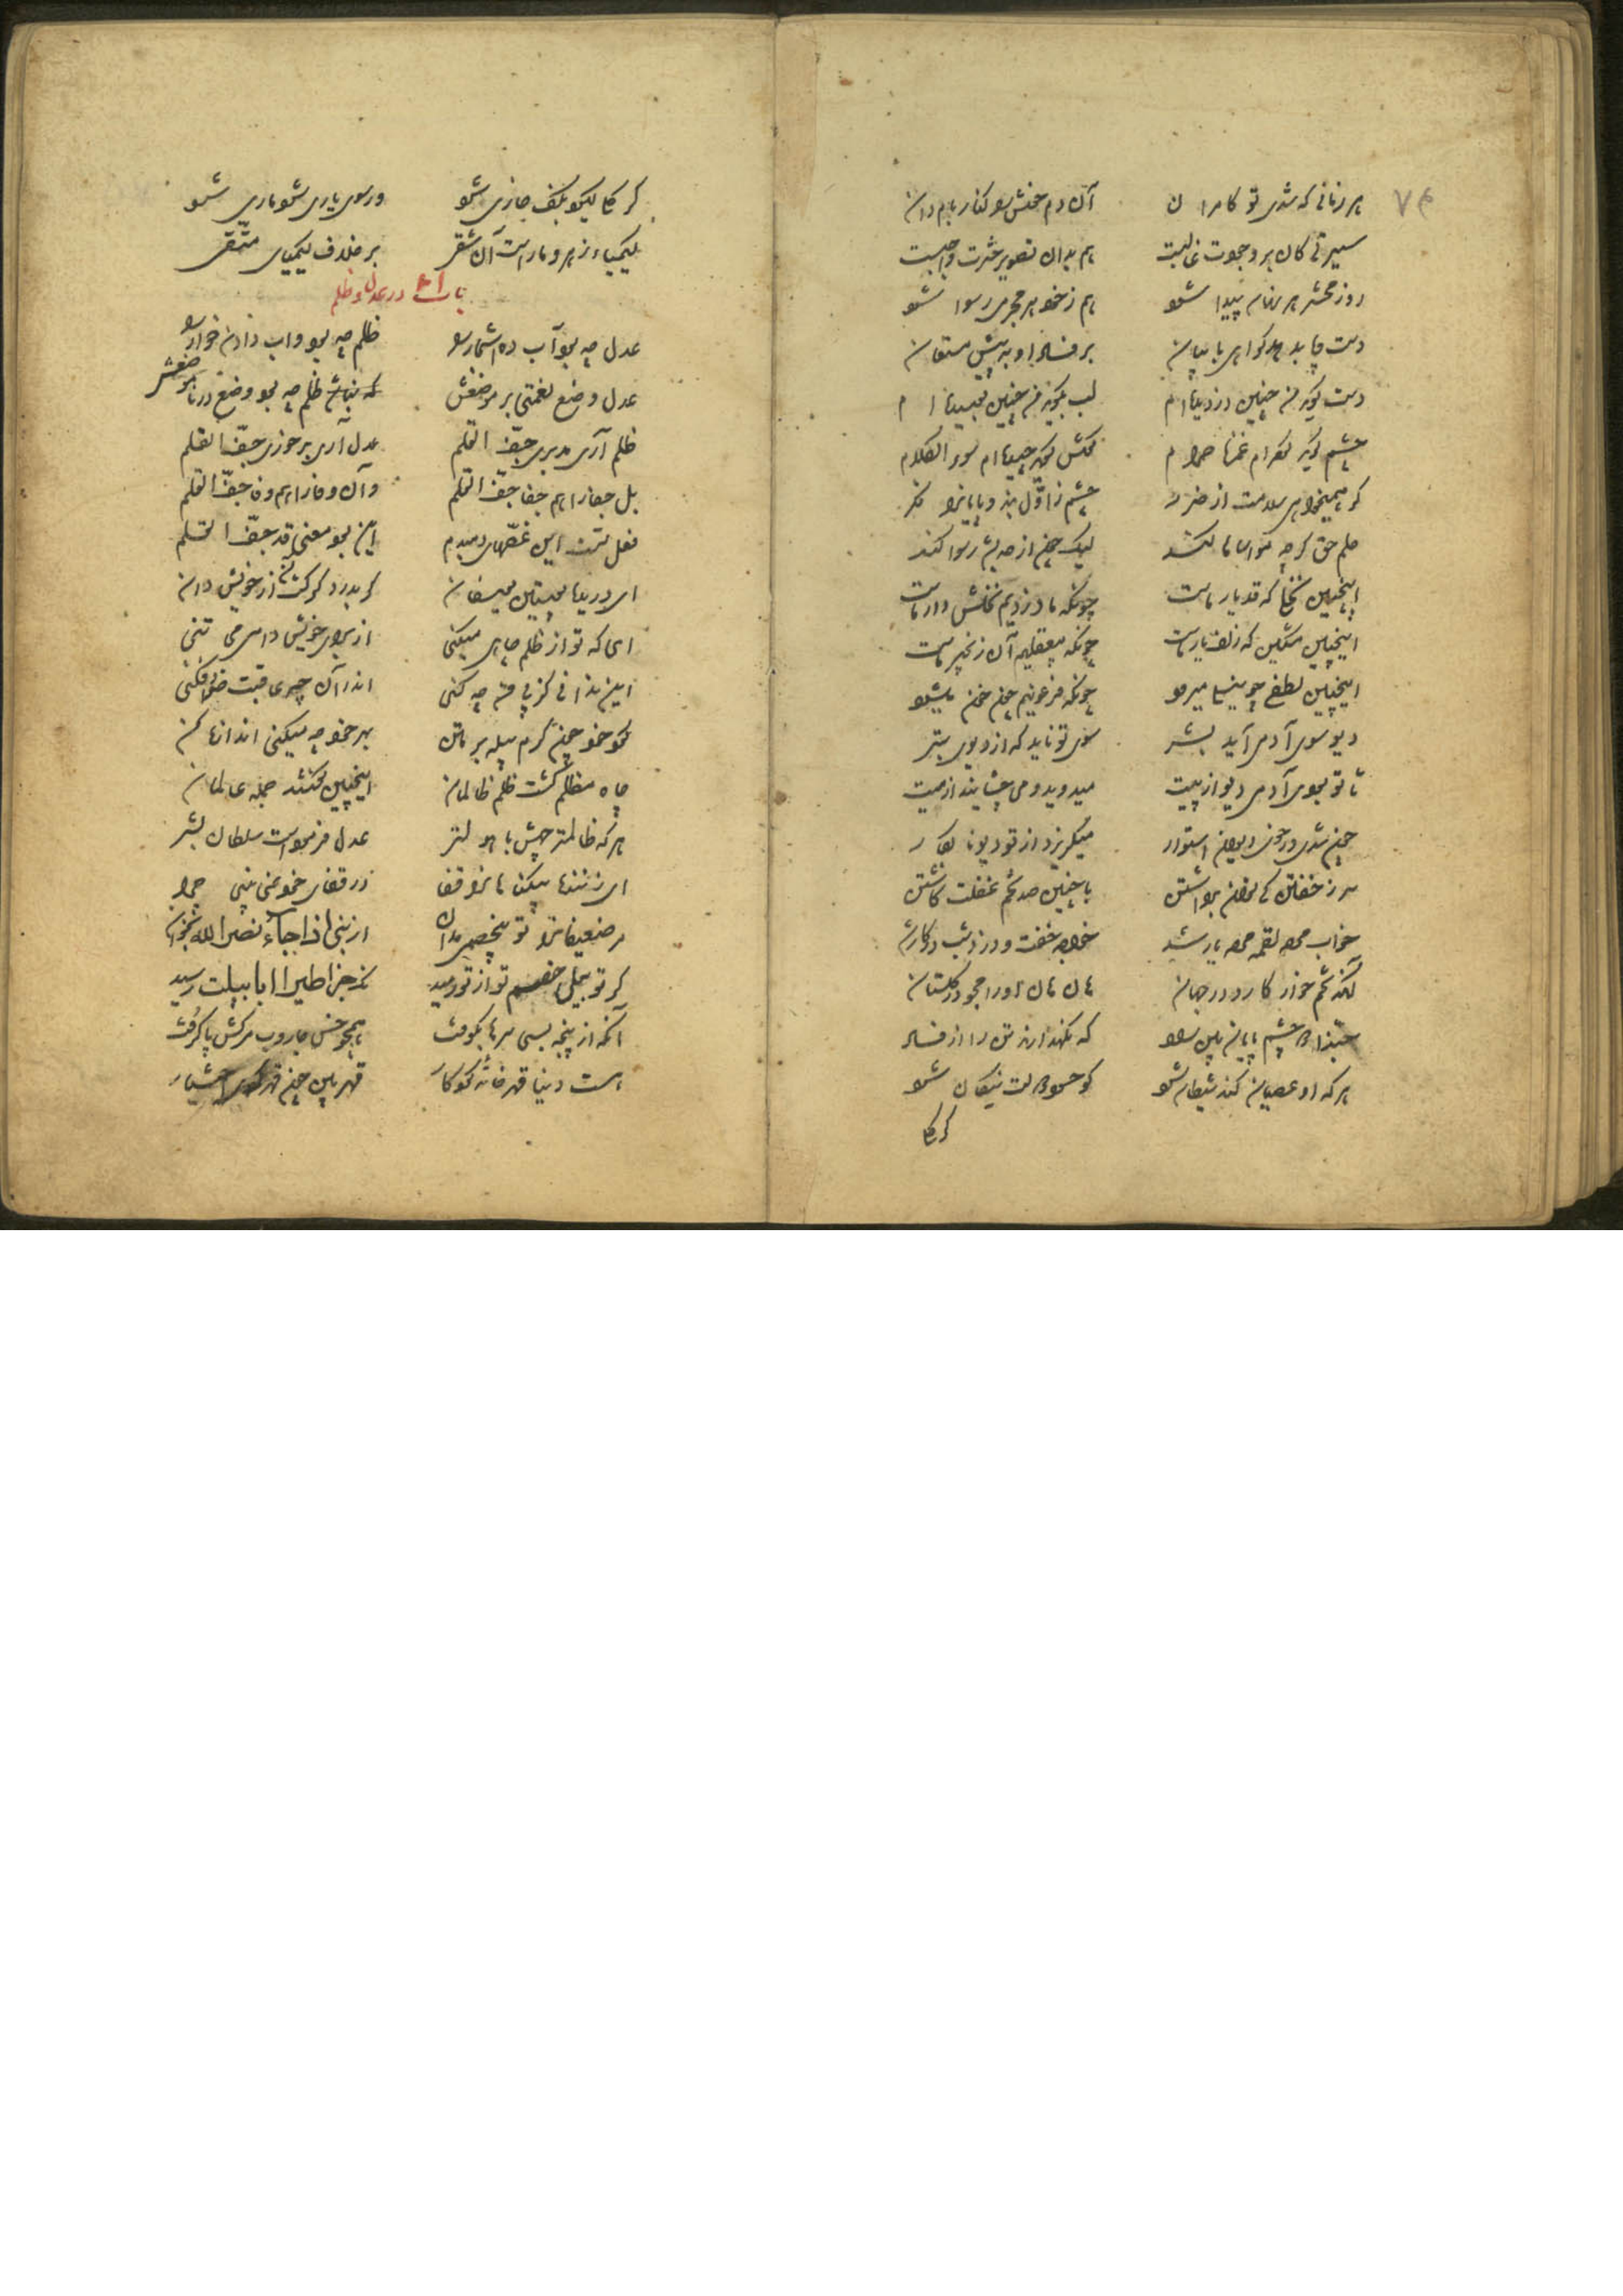 ۷۴
هر زمانی که شدی تو کامران آن دم خوش را کنار بام دان
سیرتی کان بر وجودت غالبست هم بدان تصویر حشرت واجبست
روز محشر هر نهان پیدا شود هم ز خود هر مجرمی رسوا شود
دست و پا بدهد گواهی با بیان بر فساد او به پیش مستعان
دست گوید من چنین دزدیده‌ام لب بگوید من چنین بوسیده‌ام
چشم گوید کرده‌ام غمزه حرام گوش گوید چیده‌ام سوء الکلام
گر همیخواهی سلامت از ضرر چشم ز اول بند و پایان را نگر
حلم حق گرچه مواساها کند لیک چون از حد بشد رسوا کند
اینچنین نخلی که قد یار ماست چونکه ما دزدیم نخلش دار ماست
اینچنین مشکین که زلف یار ماست چونکه بیعقلیم آن زنجیر ماست
اینچنین لطفی چو نیلی میرود چونکه فرعونیم چون خون میشود
دیو سوی آدمی آید بشر سوی تو ناید که از دیوی بتر
تا تو بودی آدمی دیو از پیت میدوید و می چشانید از میت
چون شدی در خوی دیوی استوار میگریزد از تو دیو نابکار
سر ز خفتن کی توان برداشتن با چنین صد تخم غفلت کاشتن
خواب مرده لقمه مرده یار شد خواجه خفت و دزد شب در کار شد
آنکه تخم خار کارد در جهان هان و هان او را مجو در گلستان
حبذا دو چشم پایان بین راد که نگهدارند تن را از فساد
هر که او عصیان کند شیطان شود کو حسود دولت نیکان شود
گر گلی
گر گلی گیرد بکف خاری شود ور سوی یاری شود ماری شود
کیمیای زهر و مارست آن شقی بر خلاف کیمیای متقی
باب در عدل و ظلم
عدل چه بود آب ده اشجار را ظلم چه بود آب دادن خار را
عدل وضع نعمتی بر موضعش ظلم چه بود وضع در ناموضعش
ظلم آری مدبری جف القلم عدل آری بر خوری جف القلم
بل جفا را هم جفا جف القلم وآن وفا را هم وفا جف القلم
فعل تست این غصهای دمبدم این بود معنی قد جف القلم
ای دریده پوستین یوسفان گر بدرد گرگت آن از خویش دان
ای که تو از ظلم چاهی میکنی از برای خویش دامی می تنی
گرد خود چون کرم پیله بر متن بهر خود چه میکنی اندازه کن
چاه مظلم گشت ظلم ظالمان اینچنین گفتند جمله عالمان
هر که ظالمتر چهش با هول تر عدل فرمودست سلطان بشر
ای زننده بیگناهان را قفا در قفای خود نمی بینی جزا
مر ضعیفان را تو بیخصمی مدان از نبی اذا جاء نصر الله بخوان
گر تو پیلی خصم تو از تو رمید نک جزا طیرا ابابیلت رسید
آنکه از پنجه بسی سرها بکوفت همچو خس جاروب مرگش پاک رفت
هست دنیا قهرخانه کردگار قهر بین چون قهر کردی اختیار